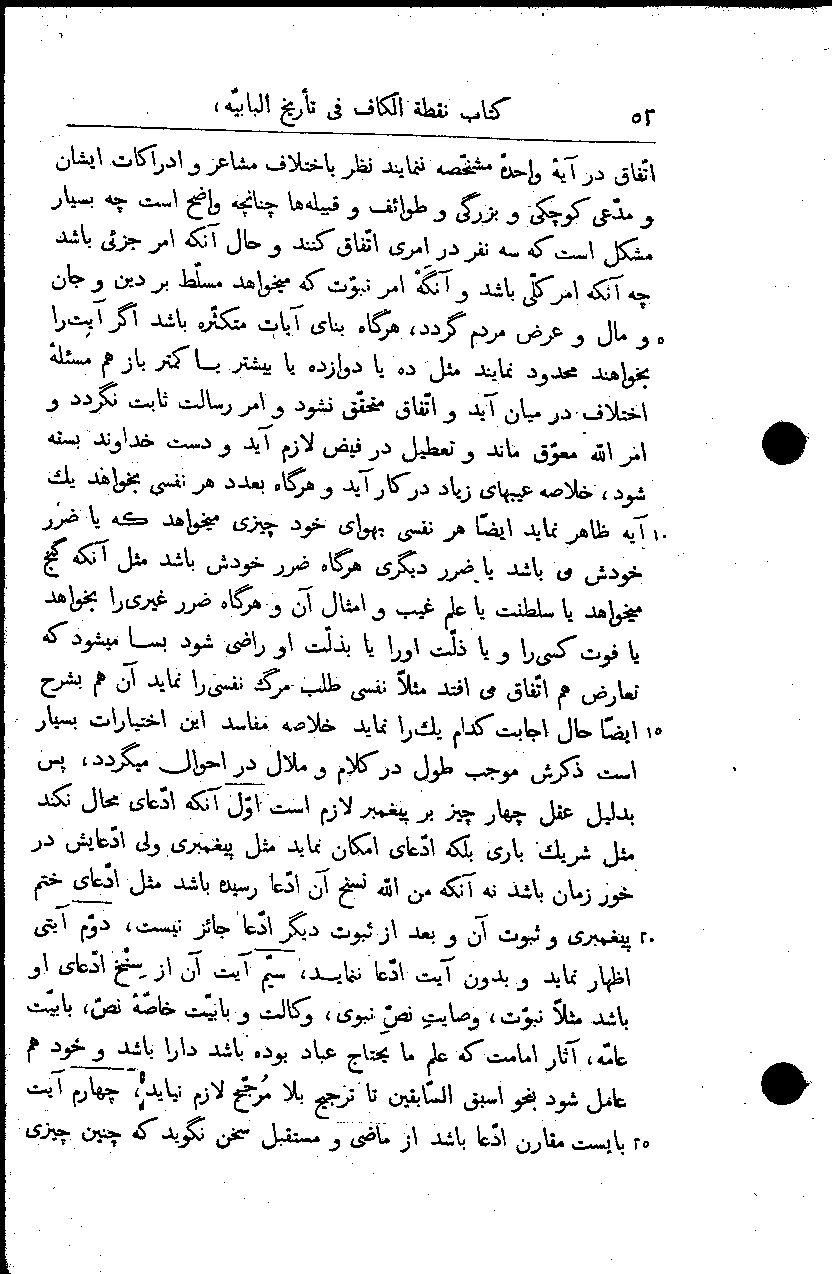 ٥٢ كتاب نقطة الكاف فى تأريخ البابيّه،
اتّفاق در آیۀ واحدۀ مشخّصه ننمایند نظر باختلاف مشاعر و ادراکات ایشان
و مدّعی کوچکی و بزرگی و طوائف و قبیله‌ها چنانچه واضح است چه بسیار
مشکل است که سه نفر در امری اتّفاق کنند و حال آنکه امر جزئی باشد
چه آنکه امر کلّی باشد و آنگَهْ امر نبوّت که میخواهد مسلّط بر دین و جان
٥ و مال و عرض مردم گردد، هرگاه بنای آیات متکثّره باشد اگر آیت‌را
بخواهند محدود نمایند مثل ده یا دوازده یا بیشتر یـا کمتر باز هم مسئلۀ
اختلاف در میان آید و اتّفاق متحقّق نشود و امر رسالت ثابت نگردد و
امر الله معوّق ماند و تعطیل در فیض لازم آید و دست خداوند بسته
شود، خلاصه عیبهای زیاد در کار آید و هرگاه بعدد هر نفسی بخواهد یك
١٠ آیه ظاهر نماید ایضًا هر نفسی بهوای خود چیزی میخواهد که یا ضرر
خودش می باشد یا ضرر دیگری هرگاه ضرر خودش باشد مثل آنکه گنج
میخواهد یا سلطنت یا علم غیب و امثال آن و هرگاه ضرر غیری‌را بخواهد
یا فوت کسی‌را و یا ذلّت اورا یا بذلّت او راضی شود بسـا میشود که
تعارض هم اتّفاق می افتد مثلاً نفسی طلب مرگ نفسی‌را نماید آن هم بشرح
١٥ ایضًا حال اجابت کدام یك‌را نماید خلاصه مفاسد این اختیارات بسیار
است ذکرش موجب طول در کلام و ملال در احوال میگردد، پس
بدلیل عقل چهار چیز بر پیغمبر لازم است اوّل آنکه ادّعای محال نکند
مثل شریك باری بلکه ادّعای امکان نماید مثل پیغمبری ولی ادّعایش در
خور زمان باشد نه آنکه من الله نسخ آن ادّعا رسیده باشد مثل ادّعای ختم
٢٠ پیغمبری و ثبوت آن و بعد از ثبوت دیگر ادّعا جائز نیست، دوّم آیتی
اظهار نماید و بدون آیت ادّعا ننمایـد، سیّم آیت آن از سِنْخ ادّعای او
باشد مثلاً نبوّت، وصایتِ نصِّ نبوی، وکالت و بابیّت خاصّۀ نصّ، بابیّت
عامّه، آثار امامت که علم ما یحتاج عباد بوده باشد دارا باشد و خود هم
عامل شود بنحو اسبق السّابقین تا ترجیح بلا مُرجّح لازم نیاید، چهارم آیت
٢٥ بایست مقارن ادّعا باشد از ماضی و مستقبل سخن نگوید که چنین چیزی